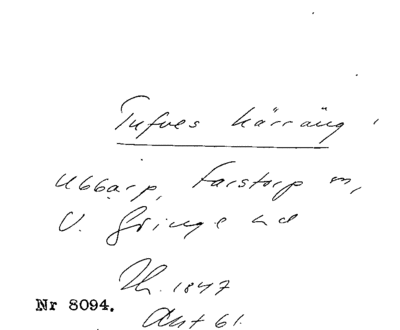 Tufves Kärräng
Ubbarp, Farstorp sn,
V. Göinge hd
Th. 1847
Nr 8094.
Akt 61.